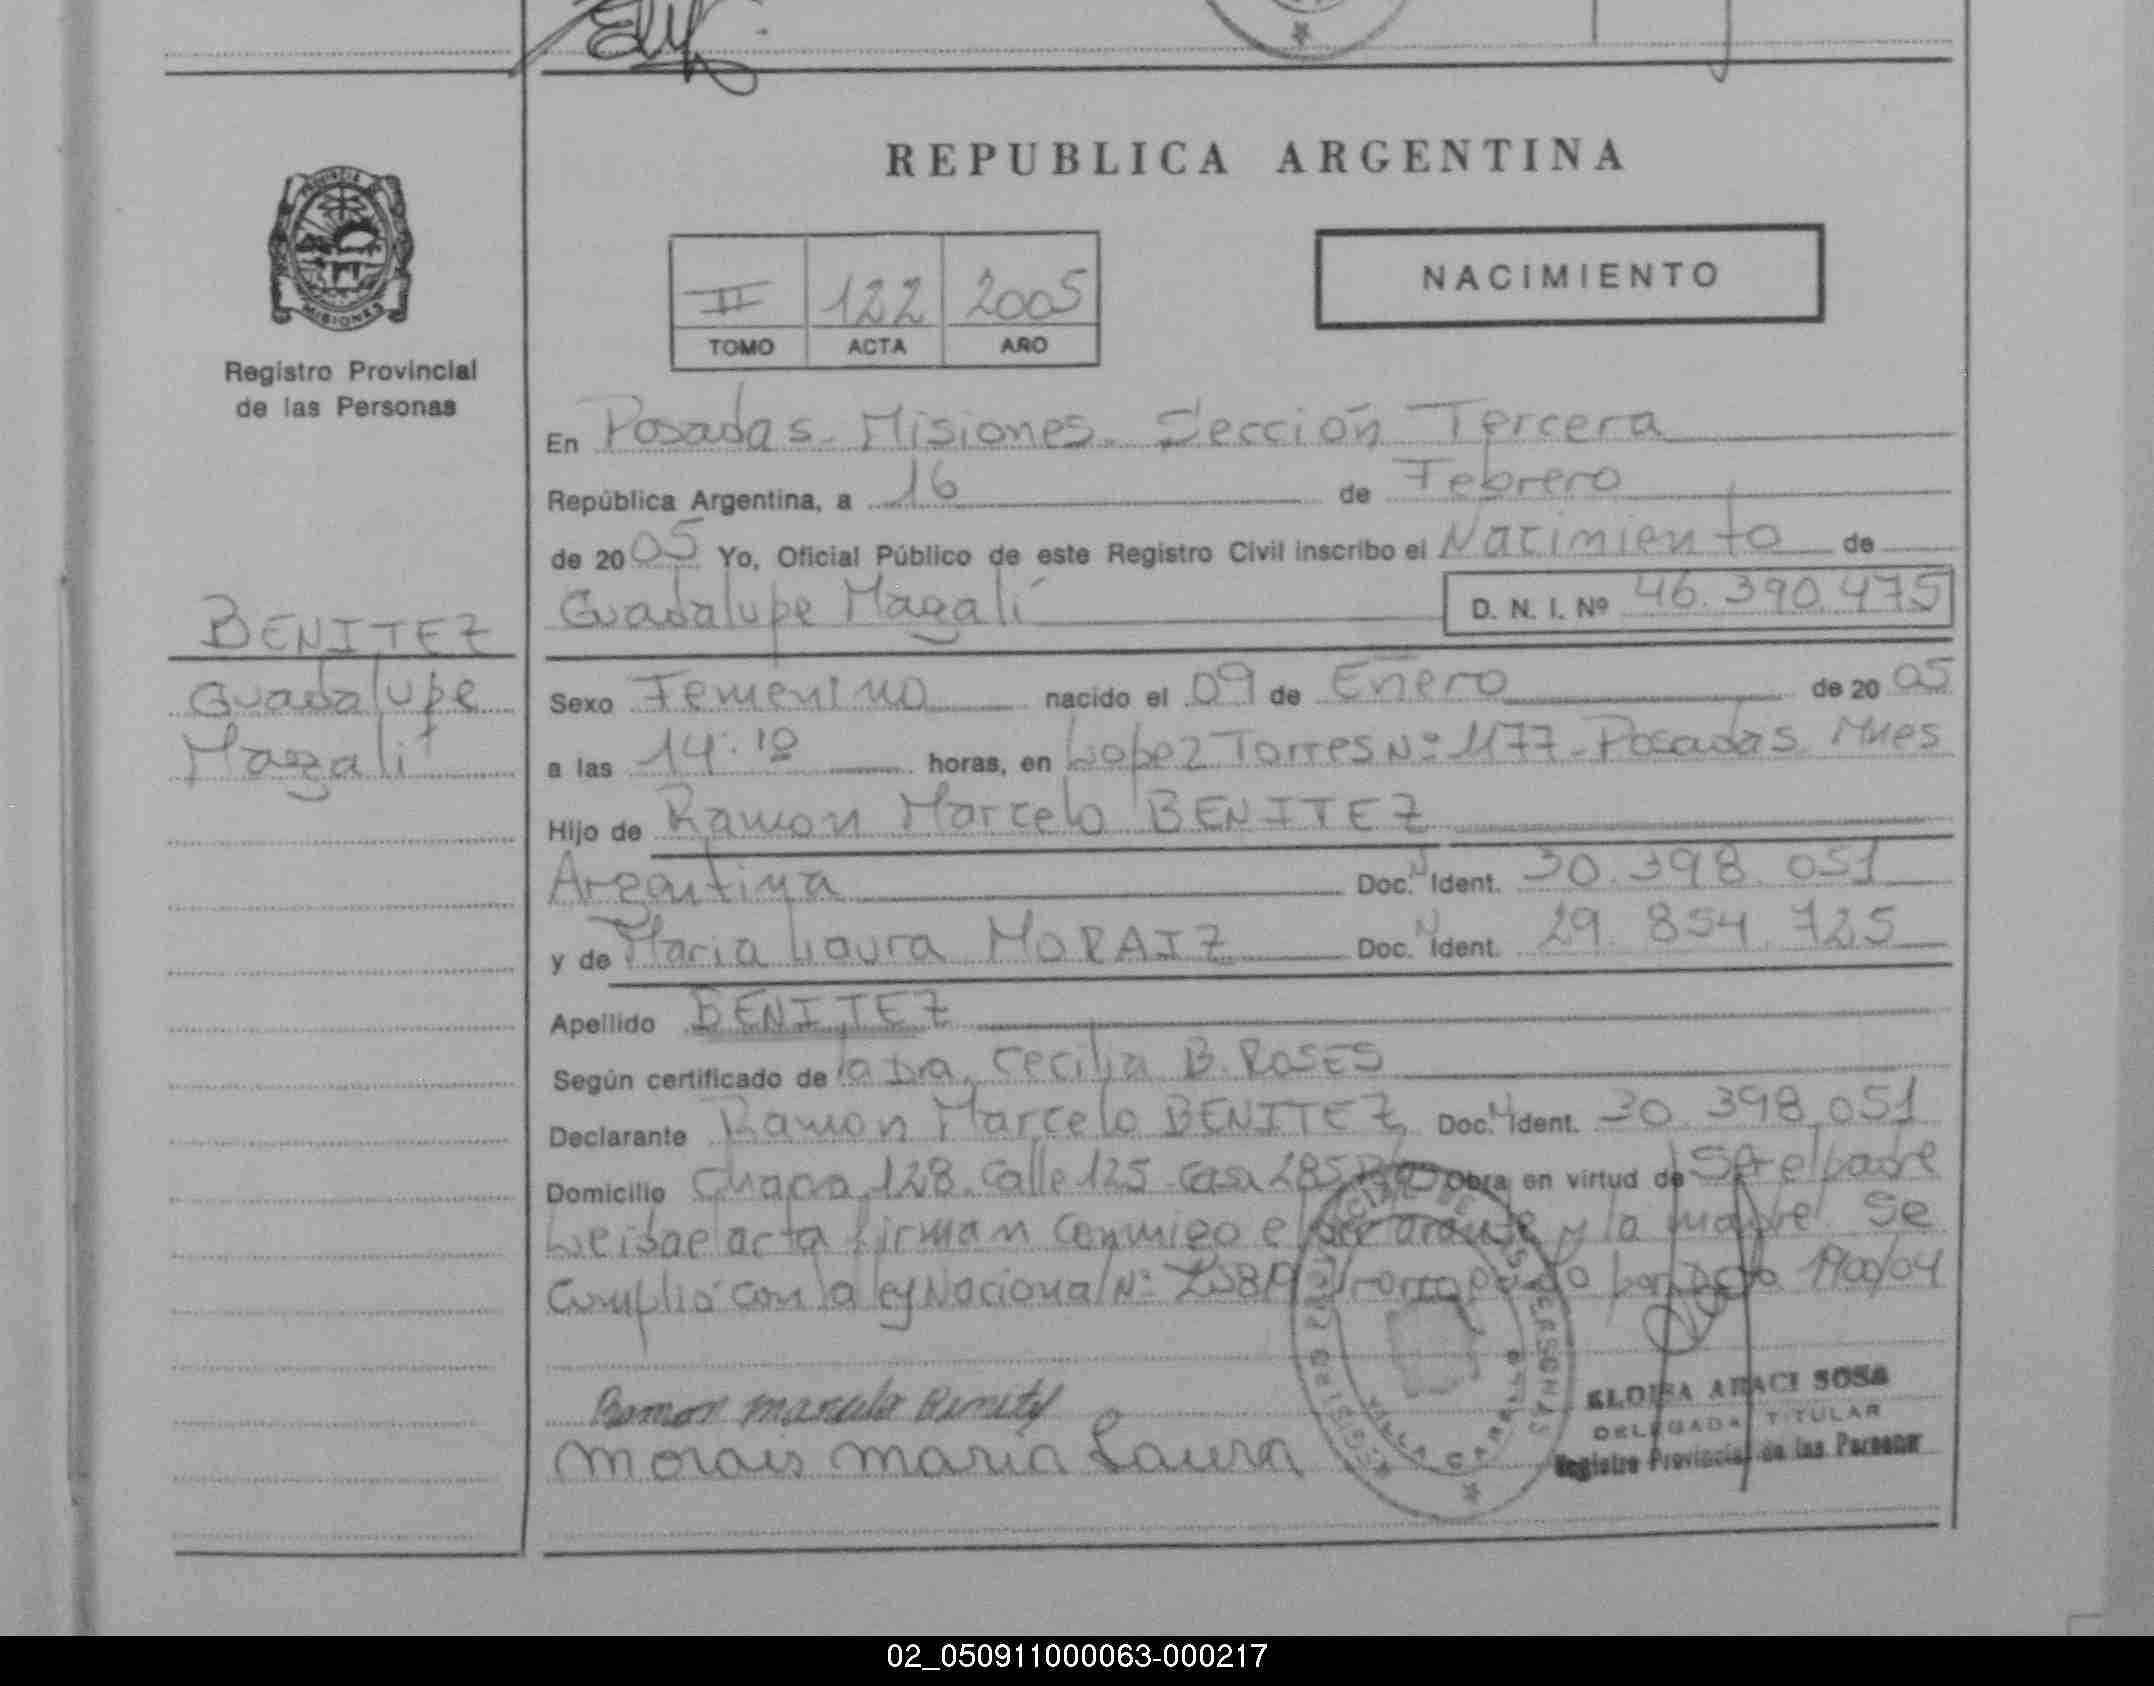 REPUBLICA ARGENTINA
PROVINCIA DE
MISIONES
Registro Provincial
de las Personas
II 122 2005
TOMO ACTA AÑO
NACIMIENTO
En Posadas - Misiones - Sección Tercera
República Argentina, a 16 de Febrero
de 2005 Yo, Oficial Público de este Registro Civil inscribo el Nacimiento de
Guadalupe Magalí D. N. I. Nº 46.390.475
BENITEZ
Guadalupe
Magalí
Sexo Femenino nacido el 09 de Enero de 2005
a las 14.10 horas, en Lopez Torres Nº 1177 - Posadas Mnes
Hijo de Ramon Marcelo BENITEZ
Argentina Doc. N Ident. 30.398.051
y de Maria Laura MORAIZ Doc. N Ident. 29.854.725
Apellido BENITEZ
Según certificado de la Dra. Cecilia B. ROSES
Declarante Ramon Marcelo BENITEZ Doc. N Ident. 30.398.051
Domicilio Chacra 128. Calle 125. Casa 285 Obra en virtud de Ser el padre
Leida el acta firman conmigo el declarante y la madre. Se
Cumplió con la ley Nacional Nº por 1900/04
Ramon Marcelo Benitez
Morais maria Laura
VILLA CABELLO
ELOISA ARACI SOSA
DELEGADA TITULAR
Registro Provincial de las Personas
02_050911000063-000217